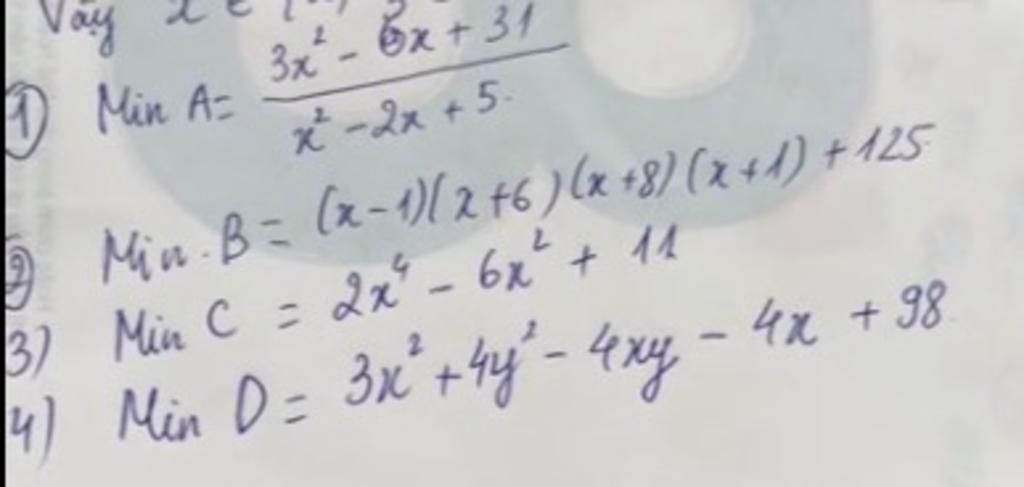 Vậy x ∈
1) Min A = (3x² - 6x + 31)/(x² - 2x + 5)
2) Min B = (x-1)(x+6)(x+8)(x+1) + 125
3) Min C = 2x⁴ - 6x² + 11
4) Min D = 3x² + 4y² - 4xy - 4x + 98